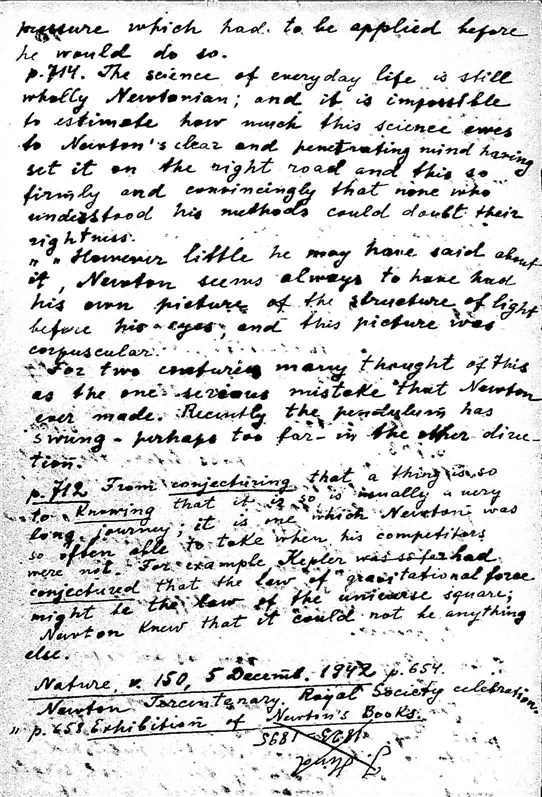 pressure which had to be applied before
he would do so.
p.714. The science of everyday life is still
wholly Newtonian; and it is impossible
to estimate how much this science owes
to Newton's clear and penetrating mind having
set it on the right road and this so
firmly and convincingly that none who
understood his methods could doubt their
rightness.
" " However little he may have said about
it, Newton seems always to have had
his own picture of the structure of light
before his eyes, and this picture was
corpuscular.
For two centuries many thought of this
as the one serious mistake that Newton
ever made. Recently the pendulum has
swung - perhaps too far - in the other direc-
tion.
p.712 From conjecturing that a thing is so
to Knowing that it is so is usually a very
long journey; it is one which Newton was
so often able to take when his competitors
were not. For example Kepler was so far had
conjectured that the law of gravitational force
might be the law of the universe square;
Newton knew that it could not be anything
else.
Nature, v. 150, 5 Decemb. 1942 p.654.
Newton Tercentenary, Royal Society celebration.
" p.658 Exhibition of Newton's Books.
1823-1895